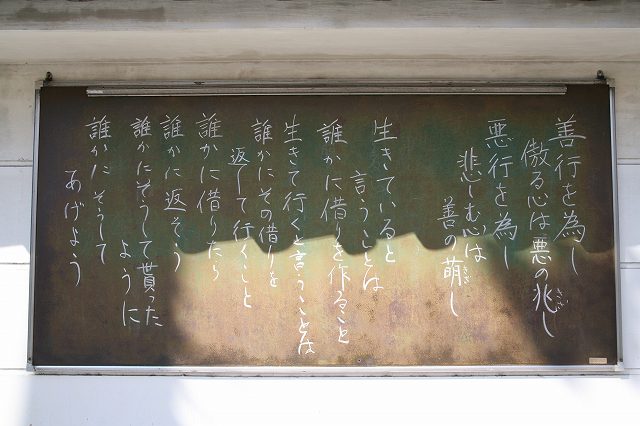 善行を為し
傲る心は悪の兆し
きざ
悪行を為し
悲しむ心は
善の萌し
きざ
生きていると
言うことは
誰かに借りを作ること
生きて行くと言うことは
誰かにその借りを
返して行くこと
誰かに借りたら
誰かに返そう
誰かにそうして貰った
ように
誰かにそうして
あげよう